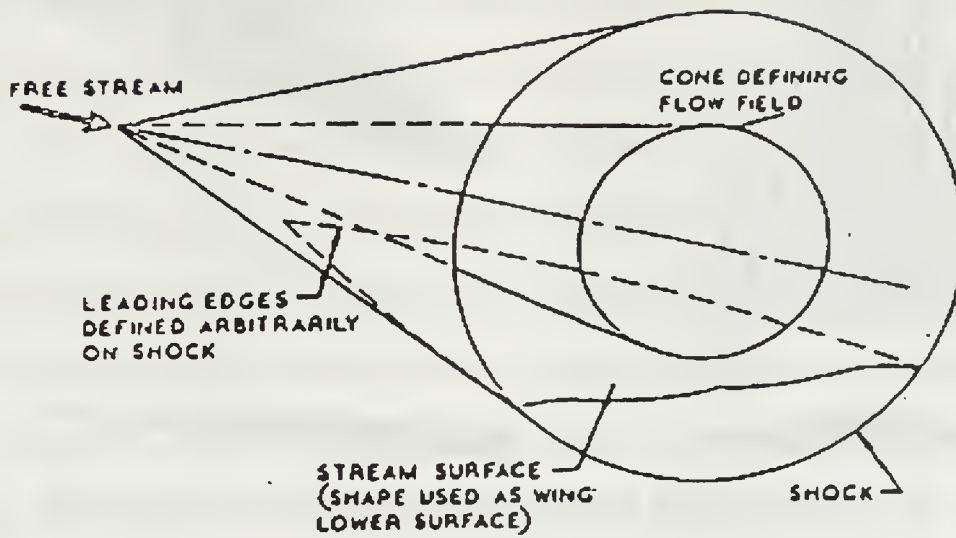 FREE STREAM
CONE DEFINING
FLOW FIELD
LEADING EDGES
DEFINED ARBITRARILY
ON SHOCK
STREAM SURFACE
(SHAPE USED AS WING
LOWER SURFACE)
SHOCK